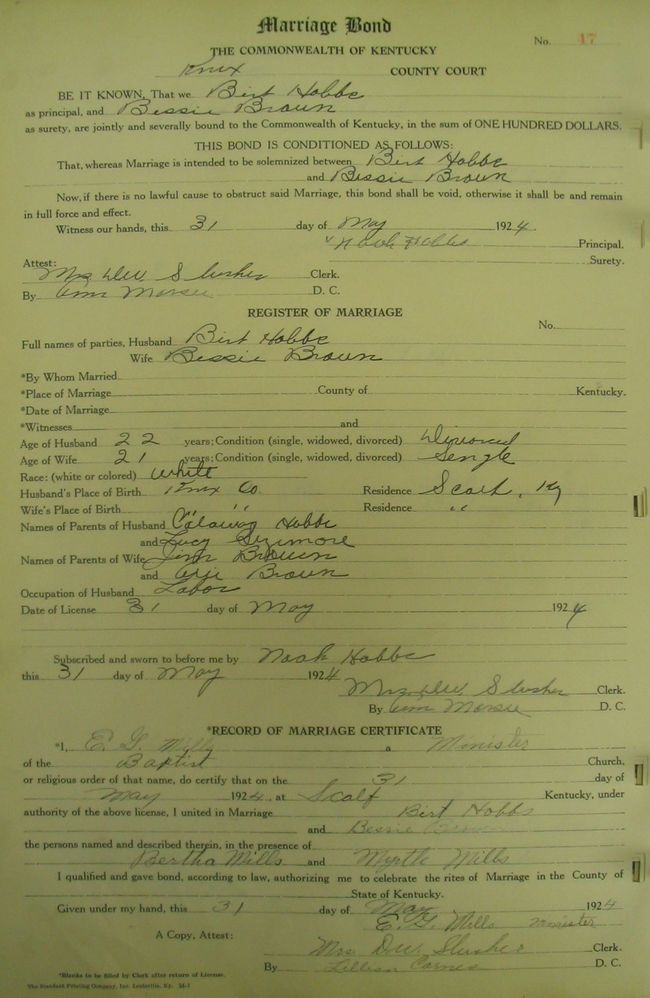 Marriage Bond
No. 17
THE COMMONWEALTH OF KENTUCKY
Knox COUNTY COURT
BE IT KNOWN, That we Birt Hobbs
as principal, and Bessie Brown
as surety, are jointly and severally bound to the Commonwealth of Kentucky, in the sum of ONE HUNDRED DOLLARS.
THIS BOND IS CONDITIONED AS FOLLOWS:
That, whereas Marriage is intended to be solemnized between Birt Hobbs
and Bessie Brown
Now, if there is no lawful cause to obstruct said Marriage, this bond shall be void, otherwise it shall be and remain
in full force and effect.
Witness our hands, this 31 day of May 1924
Noah Hobbs Principal.
Surety.
Attest:
Mrs D.W. Slusher Clerk.
By D. C.
REGISTER OF MARRIAGE
No.
Full names of parties, Husband Birt Hobbs
Wife Bessie Brown
*By Whom Married
*Place of Marriage County of Kentucky.
*Date of Marriage
*Witnesses and
Age of Husband 22 years; Condition (single, widowed, divorced) Divorced
Age of Wife 21 years; Condition (single, widowed, divorced) Single
Race: (white or colored) White
Husband's Place of Birth Knox Co Residence Scalf, Ky
Wife's Place of Birth " " Residence "
Names of Parents of Husband Hobbs
and Lucy Sizimore
Names of Parents of Wife Jim Brown
and Brown
Occupation of Husband Labor
Date of License 31 day of May 1924
Subscribed and sworn to before me by Noah Hobbs
this 31 day of May 1924
Mrs D.W. Slusher Clerk.
By D. C.
*RECORD OF MARRIAGE CERTIFICATE
*I, E. G. Mills a Minister
of the Baptist Church,
or religious order of that name, do certify that on the 31 day of
May 1924, at Scalf Kentucky, under
authority of the above license, I united in Marriage Birt Hobbs
and Bessie Brown
the persons named and described therein, in the presence of
Bertha Mills and Myrtle Mills
I qualified and gave bond, according to law, authorizing me to celebrate the rites of Marriage in the County of
State of Kentucky.
Given under my hand, this 31 day of May 1924
E. G. Mills Minister
A Copy, Attest:
Mrs D.W. Slusher Clerk.
By Lillian D. C.
*Blanks to be filled by Clerk after return of License.
The Standard Printing Company, Inc. Louisville, Ky.